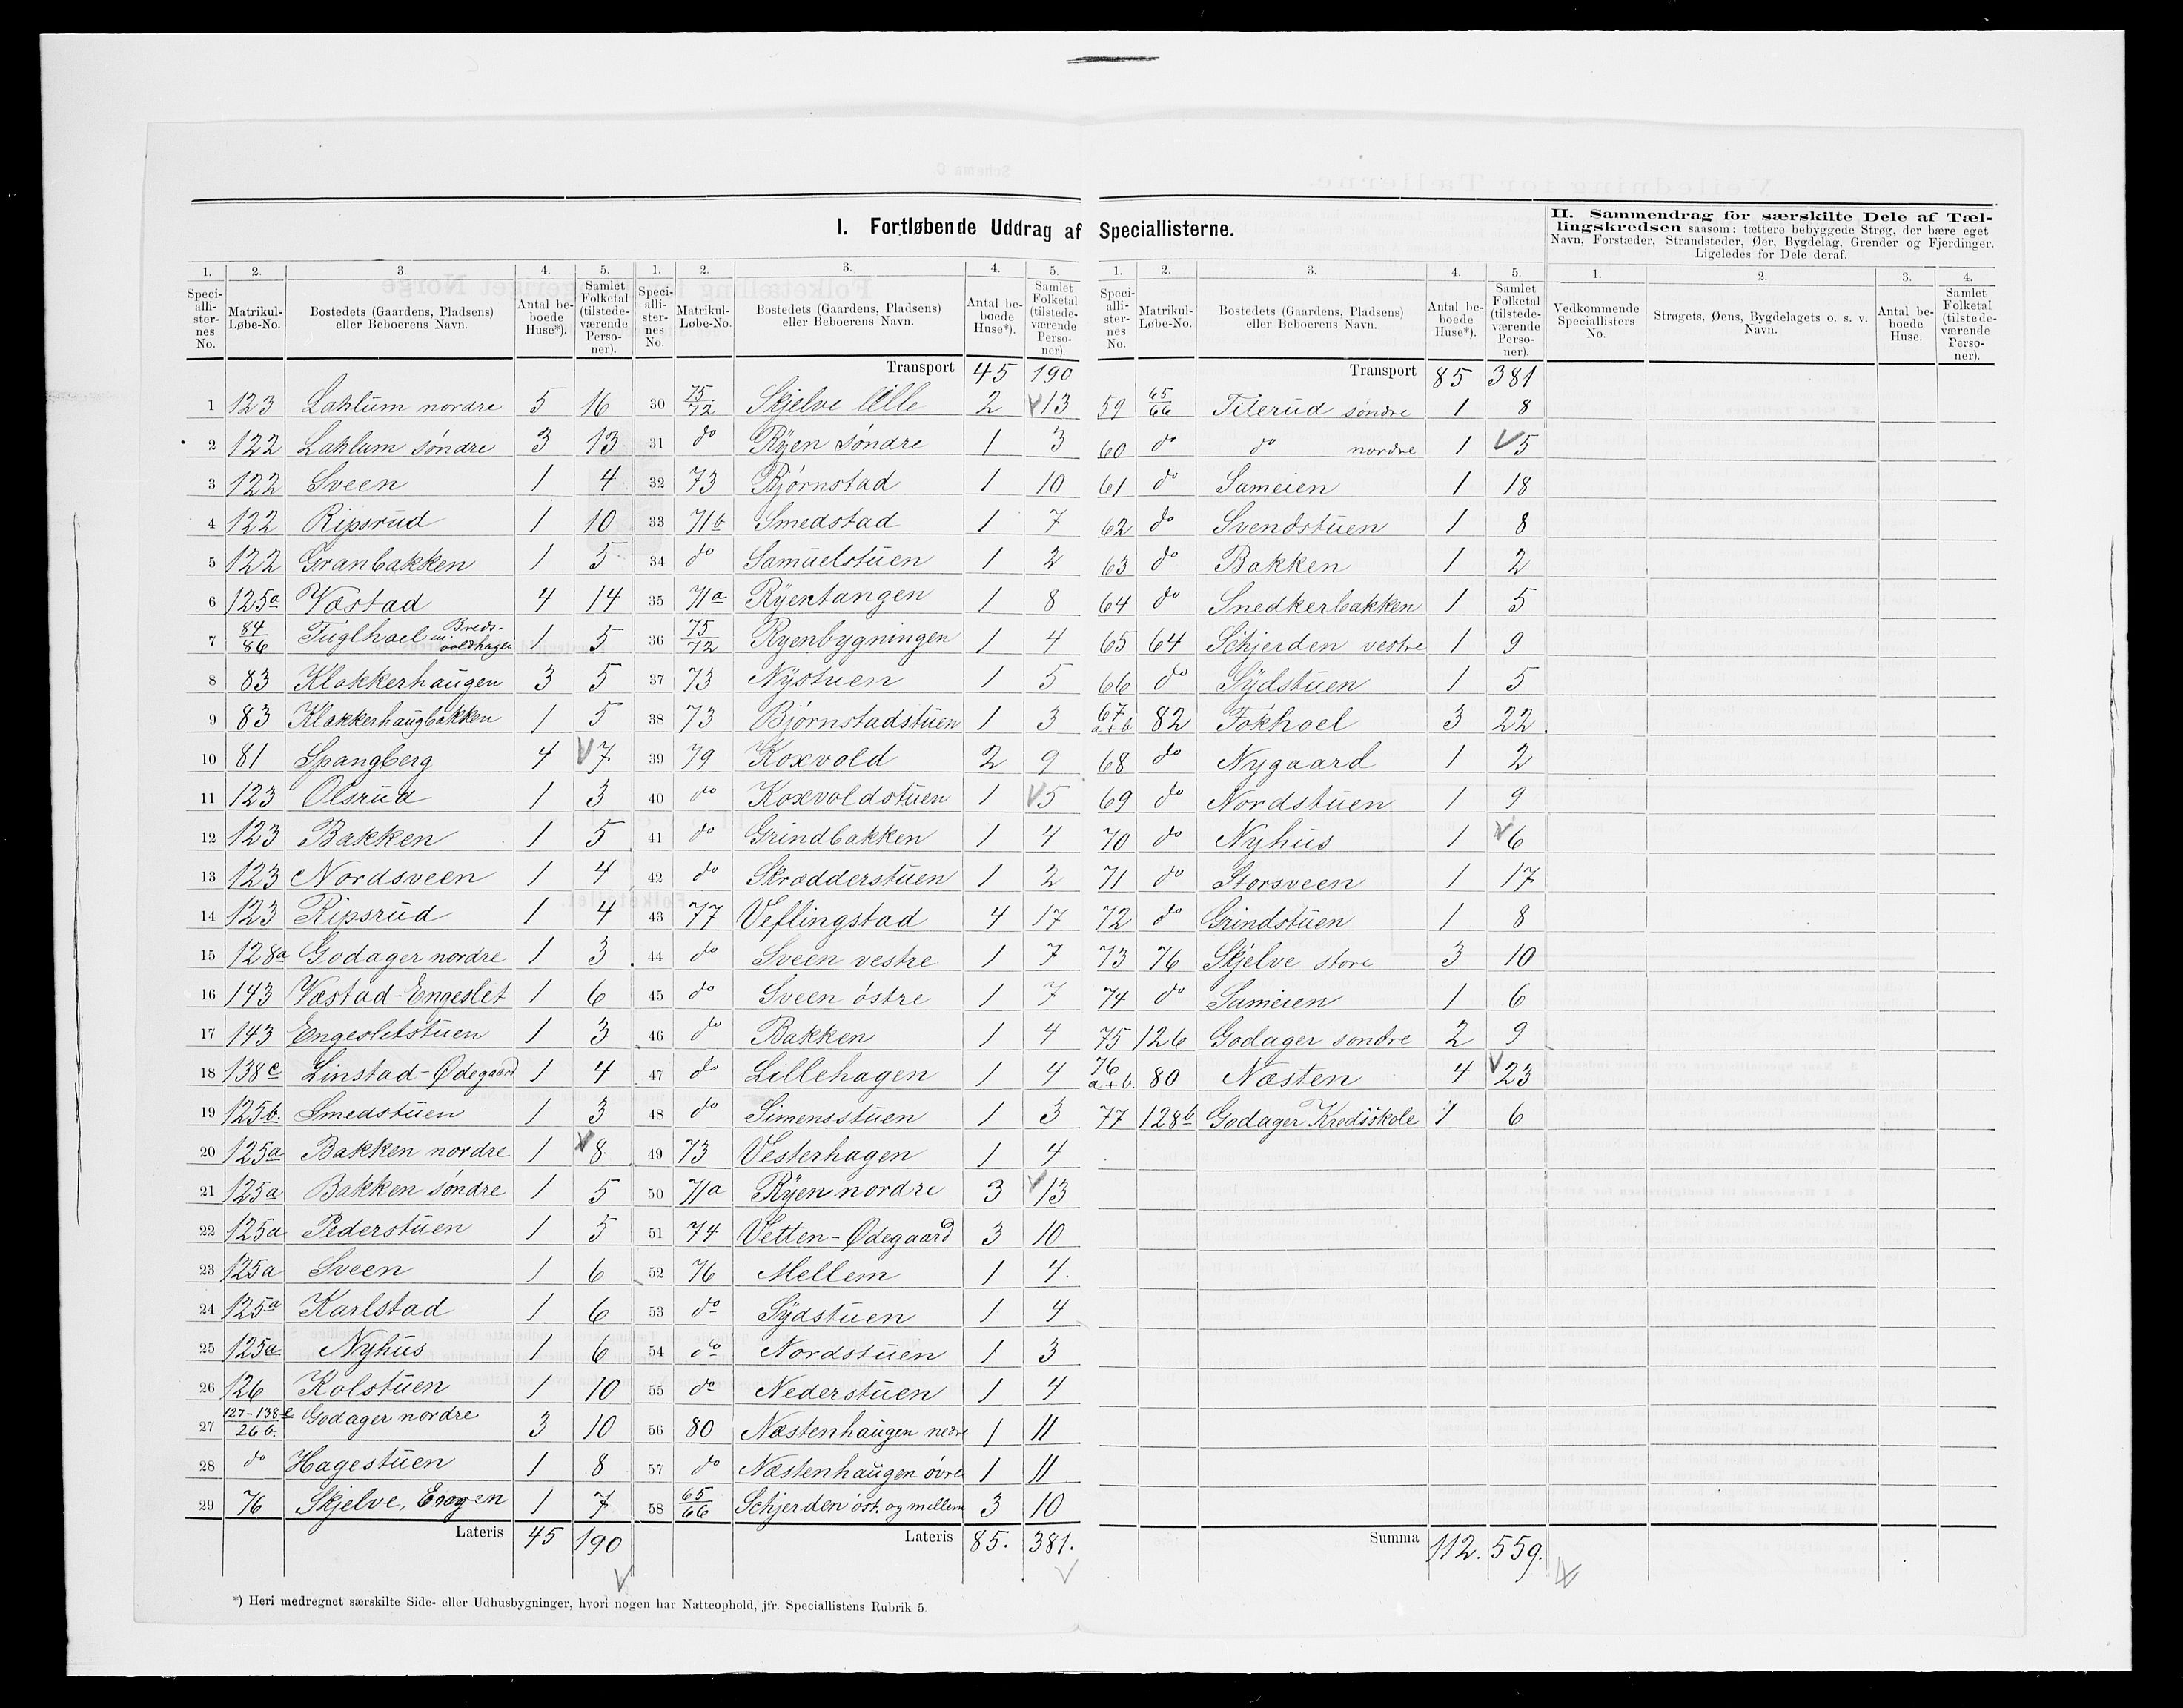 I. Fortløbende Uddrag af Speciallisterne.
II. Sammendrag for særskilte Dele af Tæl-
lingskredsen saasom: tættere bebyggede Strøg, der bære eget
Navn, Forstæder, Strandsteder, Øer, Bygdelag, Grender og Fjerdinger.
Ligeledes for Dele deraf.
1. 2. 3. 4. 5.
Speci-alli-ster-nes No. Matrikul-Løbe-No. Bostedets (Gaardens, Pladsens) eller Beboerens Navn. Antal be-boede Huse*). Samlet Folketal (tilstede-værende Perso-ner).
1 123 Lahlum nordre 5 16
2 122 Lahlum søndre 3 13
3 122 Sveen 1 4
4 122 Ripsrud 1 10
5 122 Granbakken 1 5
6 125a Vastad 4 14
7 84/86 Fuglhoel m. Breds-voldhagen 1 5
8 83 Klakkerhaugen 3 5
9 83 Klakkerhaugbakken 1 5
10 81 Spangberg 4 7
11 123 Olsrud 1 3
12 123 Bakken 1 5
13 123 Nordsveen 1 4
14 123 Ripsrud 1 4
15 128a Godager nordre 1 3
16 143 Vastad-Engeslet 1 6
17 143 Engesletstuen 1 3
18 138c Linstad-Ødegaard 1 4
19 125b. Smedstuen 1 3
20 125a Bakken nordre 1 8
21 125a Bakken søndre 1 5
22 125a Pederstuen 1 5
23 125a Sveen 1 6
24 125a Karlstad 1 6
25 125a Nyhus 1 6
26 126 Kolstuen 1 10
27 127-138e/26b. Godager nordre 3 10
28 do Hagestuen 1 8
29 76 Skjelve, Engen 1 7
Lateris 45 190
1. 2. 3. 4. 5.
Speci-alli-ster-nes No. Matrikul-Løbe-No. Bostedets (Gaardens, Pladsens) eller Beboerens Navn. Antal be-boede Huse*). Samlet Folketal (tilstede-værende Perso-ner).
Transport 45 190
30 75/72 Skjelve lille 2 13
31 do Ryen søndre 1 3
32 73 Bjørnstad 1 10
33 71b Smedstad 1 7
34 do Samuelstuen 1 2
35 71a Ryentangen 1 8
36 75/72 Ryenbygningen 1 4
37 73 Nystuen 1 5
38 73 Bjørnstadstuen 1 3
39 79 Koxvold 2 9
40 do Koxvoldstuen 1 5
41 do Grindbakken 1 4
42 do Skrædderstuen 1 2
43 77 Veflingstad 4 17
44 do Sveen vestre 1 7
45 do Sveen østre 1 7
46 do Bakken 1 4
47 do Lillehagen 1 4
48 do Simensstuen 1 3
49 73 Vesterhagen 1 4
50 71a Ryen nordre 3 13
51 74 Vetten-Ødegaard 3 10
52 76 Mellem 1 4.
53 do Sydstuen 1 4
54 do Nordstuen 1 3
55 do Nederstuen 1 4
56 80 Næstenhaugen nedre 1 11
57 do Næstenhaugen øvre 1 11
58 65/66 Schjerden øst. og mellem 3 10
Lateris 85. 381.
1. 2. 3. 4. 5.
Speci-alli-ster-nes No. Matrikul-Løbe-No. Bostedets (Gaardens, Pladsens) eller Beboerens Navn. Antal be-boede Huse*). Samlet Folketal (tilstede-værende Perso-ner).
Transport 85 381
59 65/66 Tilerud søndre 1 8
60 do do nordre 1 5
61 do Sameien 1 18
62 do Svendstuen 1 8
63 do Bakken 1 2
64 do Snedkerbakken 1 5
65 64 Schjerden vestre 1 9
66 do Sydstuen 1 5
67 a+b 82 Fokhoel 3 22.
68 do Nygaard 1 2
69 do Nordstuen 1 9
70 do Nyhus 1 6
71 do Storsveen 1 17
72 do Grindstuen 1 8
73 76 Skjelve store 3 10
74 do Sameien 1 6
75 126 Godager søndre 2 9
76 a+b. 80 Næsten 4 23
77 128b Godager Kredsskole 1 6
Summa 112. 559.
1. 2. 3. 4.
Vedkommende Speciallisters No. Strøgets, Øens, Bygdelagets o. s. v. Navn. Antal be-boede Huse. Samlet Folketal (tilstede-værende Perso-ner).
*) Heri medregnet særskilte Side- eller Udhusbygninger, hvori nogen har Natteophold, jfr. Speciallistens Rubrik 5.